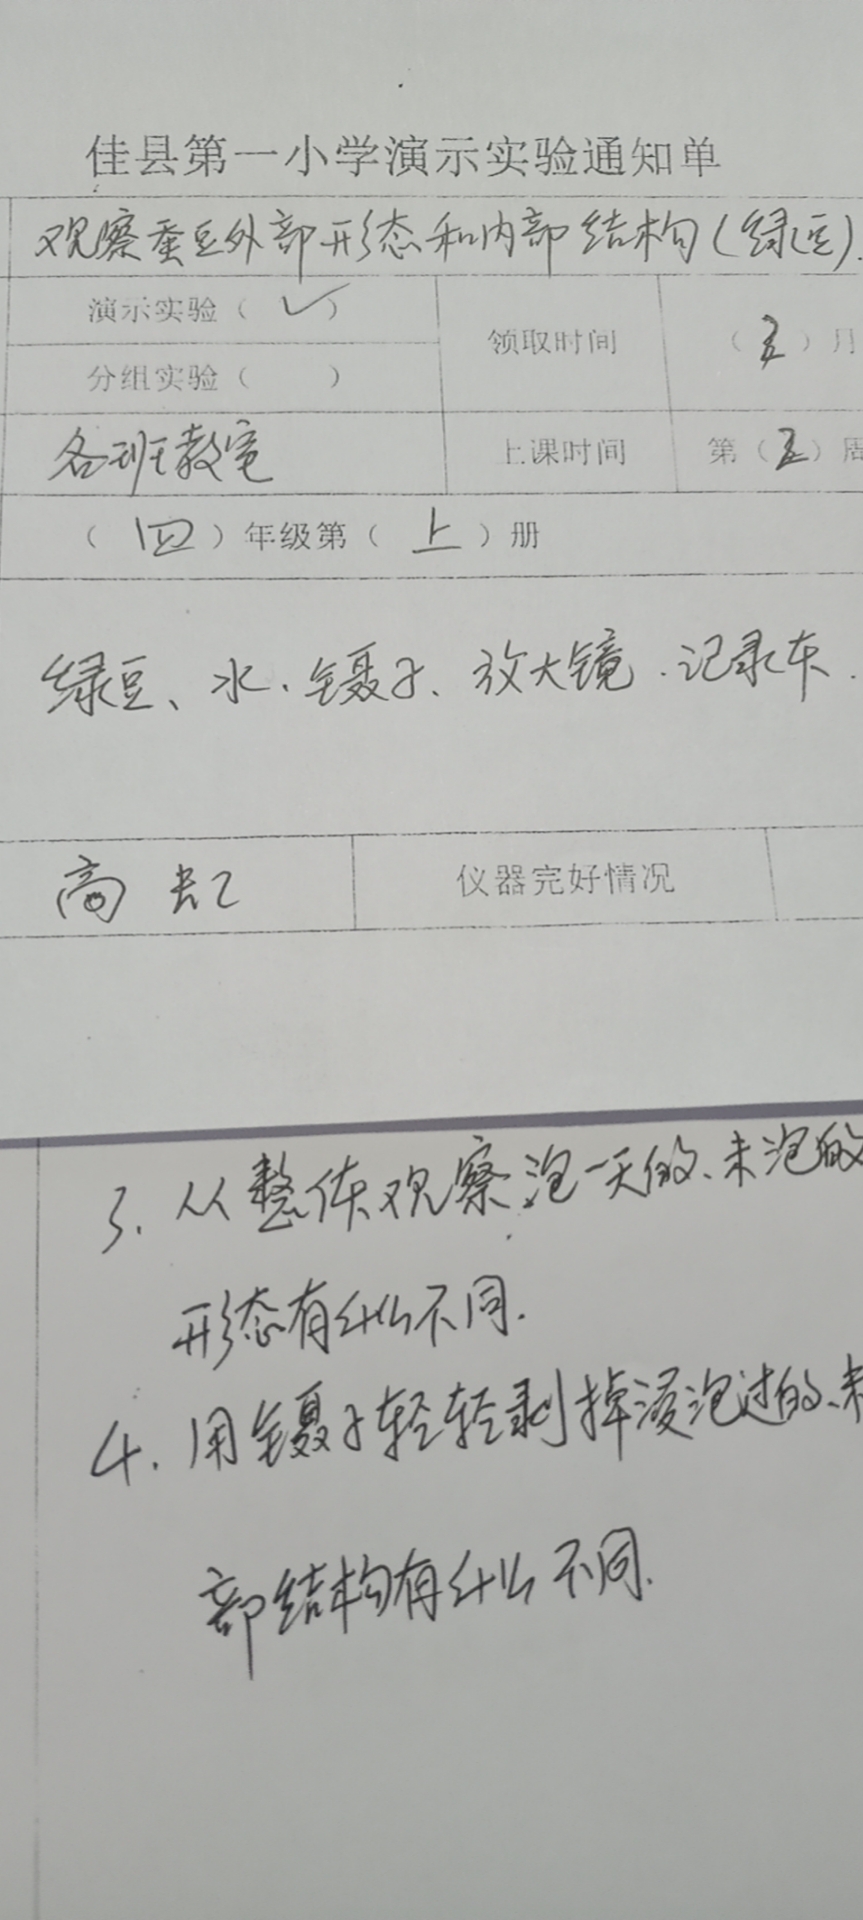 佳县第一小学演示实验通知单
观察蚕豆外部形态和内部结构(绿豆).
演示实验（ ✓ ）
领取时间
（ ）月
分组实验（ ）
各班教室
上课时间
第（ ）周
（ 四 ）年级第（ 上 ）册
绿豆、水、镊子、放大镜.记录本.
高
仪器完好情况
3. 从整体观察泡一天的、未泡的
形态有什么不同.
4. 用镊子轻轻剥掉浸泡过的、未
部结构有什么不同.